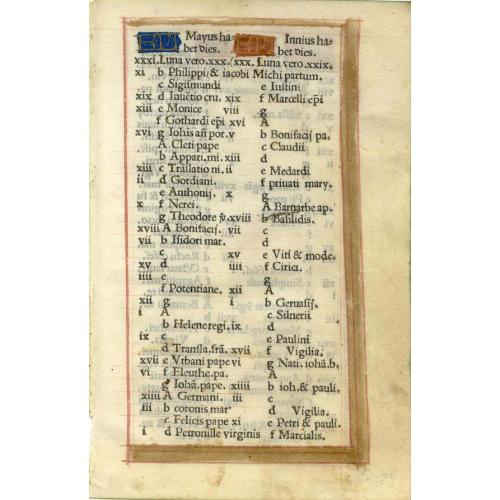 KL Mayus ha-
bet dies.
xxxi. Luna vero. xxx.
xi b Philippi & iacobi
c Sigismundi
xix d Inuẽtio cru.
xiii e Monice
f Gothardi ep̃i
xvi g Iohis añ por.
A Cleti pape
b Appari. mi.
xiii c Trãslatio ni.
ii d Gordiani.
e Anthonij.
x f Nerei.
g Theodore
xviii A Bonifacij.
vii b Isidori mar.
c
xv d
iiii e
f Potentiane.
xii g
i A
b Helene regi.
ix c
d Transla. frã.
xvii e Vrbani pape
vi f Eleuthe. pa.
g Iohã. pape.
xiiii A Germani.
iii b coronis mar
c Felicis pape
i d Petronille virginis
KL Iunius ha-
bet dies.
(xxx. Luna vero. xxix.
Michi partum.
e Iustini
xix f Marcelli ep̃i
viii g
xvi A
v b Bonifacij pa.
c Claudii
xiii d
ii e Medardi
f priuati mary.
x g
A Barnarbe ap.
xviii b Basilidis.
vii c
d
xv e Viti & mode.
iiii f Cirici.
g
xii A
i b Geruasij.
c Siluerii
ix d
e Paulini
xvii f Vigilia.
vi g Nati. iohã. b.
A
xiiii b ioh. & pauli.
iii c
d Vigilia.
xi e Petri & pauli.
f Marcialis.